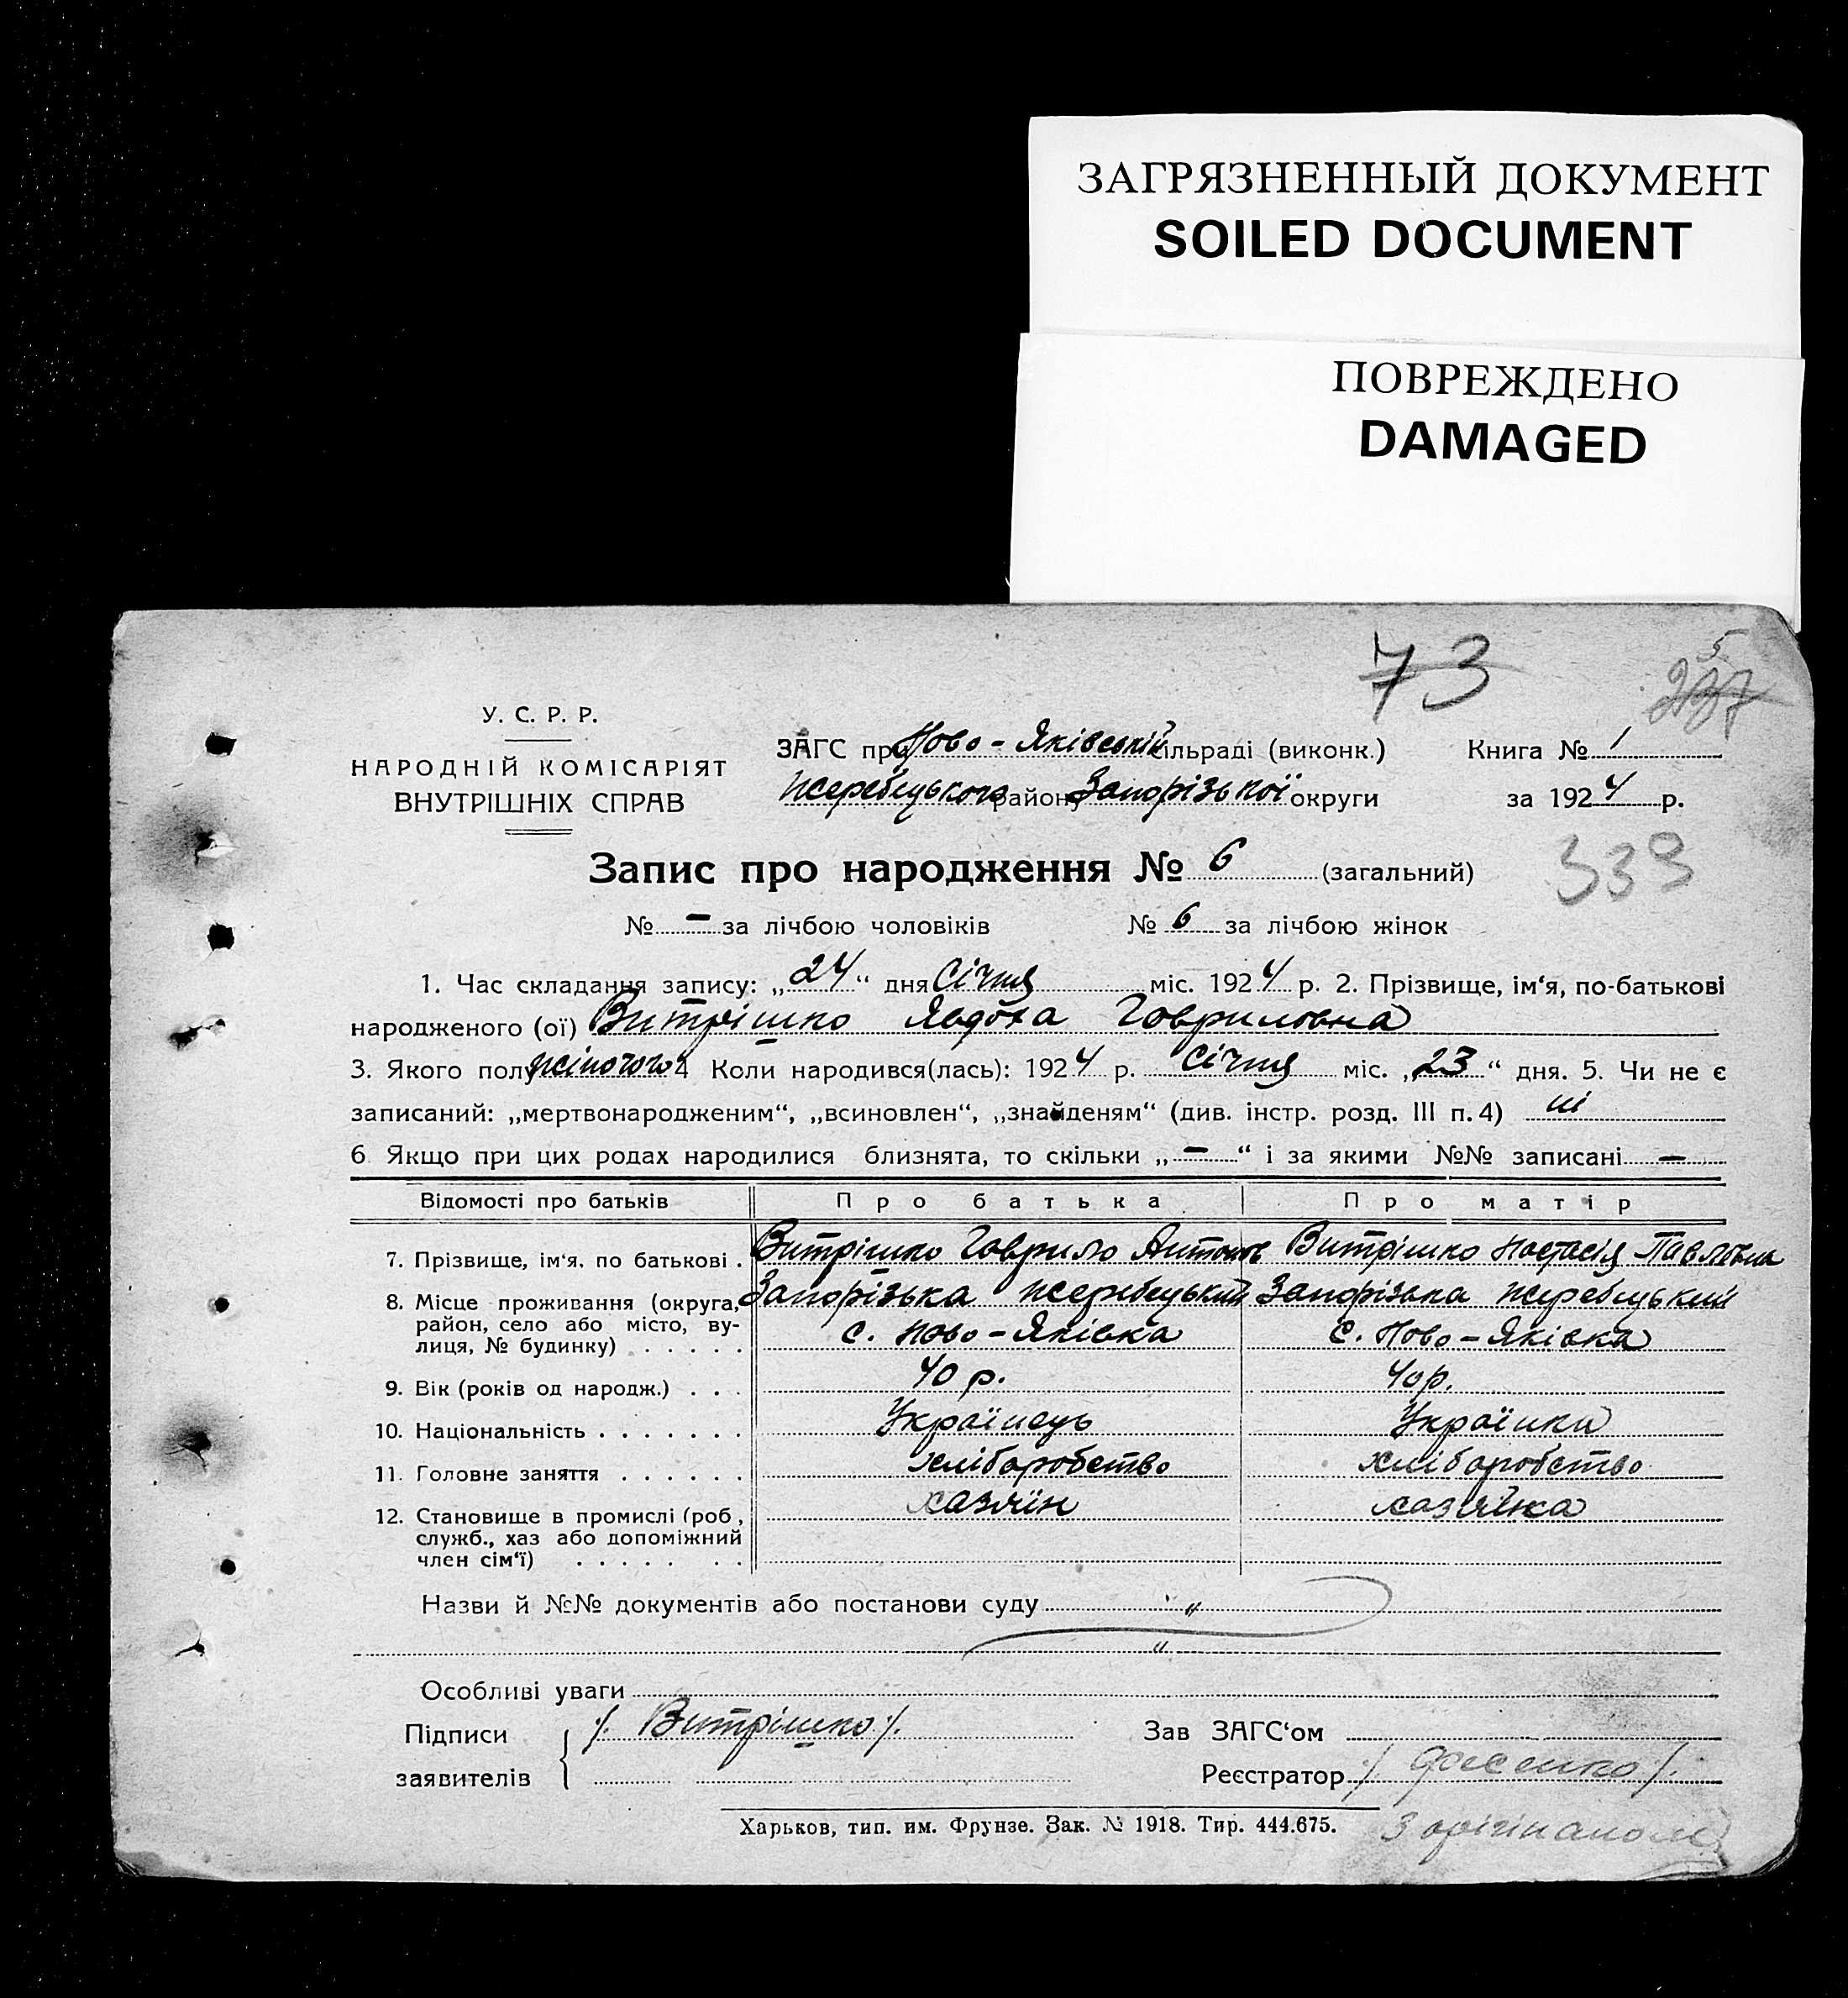 ЗАГРЯЗНЕННЫЙ ДОКУМЕНТ
SOILED DOCUMENT
ПОВРЕЖДЕНО
DAMAGED
73
5
237
У. С. Р. Р.
НАРОДНІЙ КОМІСАРІЯТ
ВНУТРІШНІХ СПРАВ
ЗАГС при Ново-Яківській сільраді (виконк.) Книга № 1
Жеребецького району Запорізької округи за 1924 р.
Запис про народження № 6 (загальний)
339
№ — за лічбою чоловіків № 6 за лічбою жінок
1. Час складання запису: „24“ дня Січня міс. 1924 р. 2. Прізвище, ім‘я, по-батькові
народженого (ої) Витрішко Явдоха Говриловна
3. Якого полу жіночого 4 Коли народився(лась): 1924 р. Січня міс. „23“ дня. 5. Чи не є
записаний: „мертвонародженим“, „всиновлен“, „знайденям“ (див. інстр. розд. III п. 4) ні
6 Якщо при цих родах народилися близнята, то скільки „—“ і за якими №№ записані —
Відомості про батьків Про батька Про матір
7. Прізвище, ім‘я, по батькові . Витрішко Говрило Антонов Витрішко Настасія Павловна
8. Місце проживання (округа, Запорізька Жеребецький Запорізька Жеребецький
район, село або місто, ву- с. Ново-Яківка с. Ново-Яківка
лиця, № будинку) . . . . .
9. Вік (років од народж.) . . . 40 р. 40 р.
10. Національність . . . . . . . Українець Українка
11. Головне заняття . . . . . . хліборобство хліборобство
12. Становище в промислі (роб, хазяїн хазяйка
служб., хаз або допоміжний
член сім‘ї) . . . . . . .
Назви й №№ документів або постанови суду „
„
Особливі уваги
Підписи /. Витрішко ./. Зав ЗАГС‘ом
заявителів Реєстратор /. Фесенко /.
Харьков, тип. им. Фрунзе. Зак. № 1918. Тир. 444.675.
З оригіналом